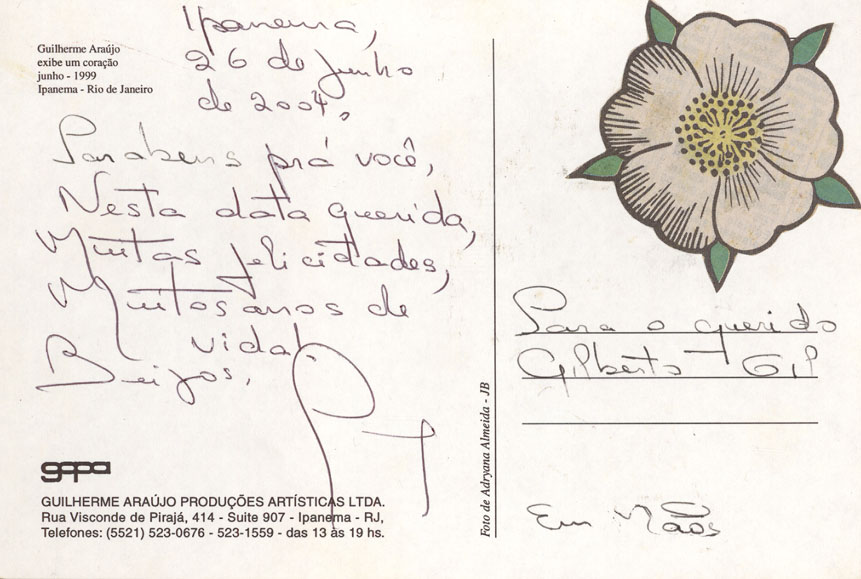 Guilherme Araújo
exibe um coração
junho - 1999
Ipanema - Rio de Janeiro
Ipanema,
26 de junho
de 2004,
Parabens prá você,
Nesta data querida,
Muitas felicidades,
Muitos anos de
vida!
Beijos,
gapa
GUILHERME ARAÚJO PRODUÇÕES ARTÍSTICAS LTDA.
Rua Visconde de Pirajá, 414 - Suite 907 - Ipanema - RJ,
Telefones: (5521) 523-0676 - 523-1559 - das 13 às 19 hs.
Foto de Adryana Almeida - JB
Para o querido
Gilberto Gil
Em Mãos